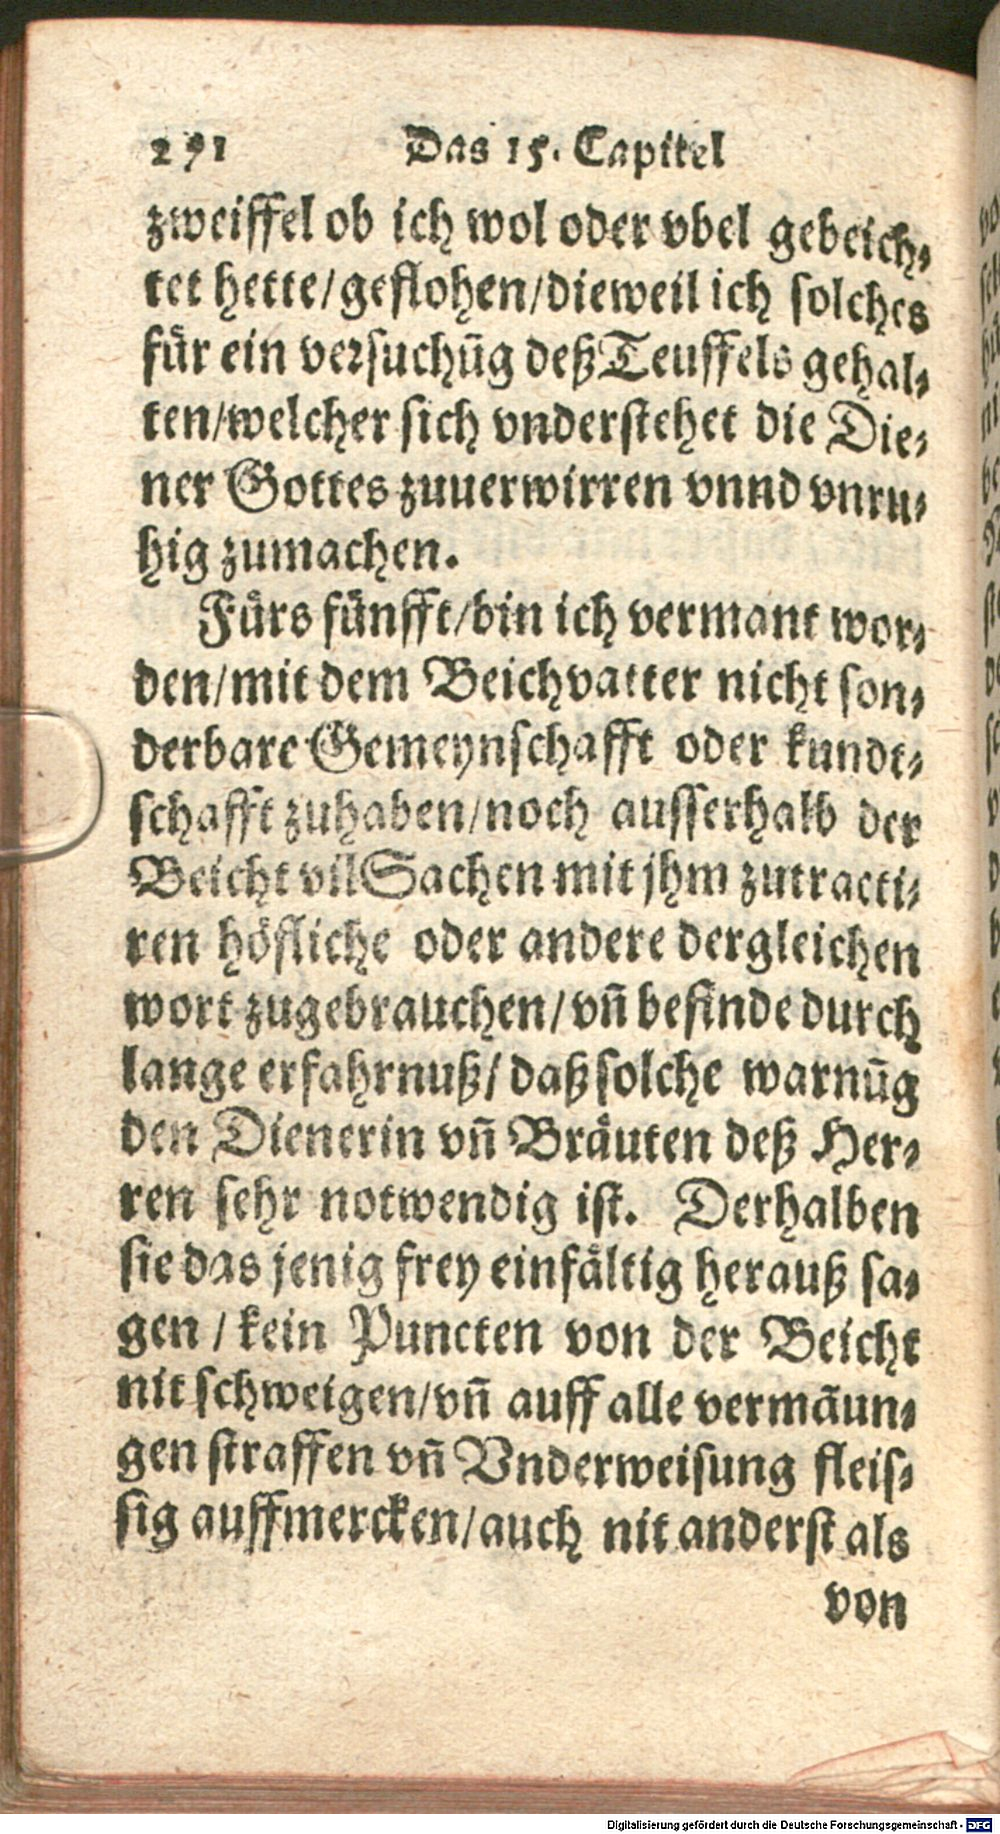 291 Das 15. Capitel
zweiffel ob ich wol oder vbel gebeich⸗
tet hette/geflohen/dieweil ich solches
fuͤr ein versuchũg deß Teuffels gehal⸗
ten/welcher sich vnderstehet die Die⸗
ner Gottes zuuerwirren vnnd vnru⸗
hig zumachen.
Fuͤrs fuͤnfft/bin ich vermant wor⸗
den/mit dem Beichvatter nicht son⸗
derbare Gemeynschafft oder kundt⸗
schafft zuhaben/noch ausserhalb der
Beicht vil Sachen mit jhm zutracti⸗
ren hoͤfliche oder andere dergleichen
wort zugebrauchen/vñ befinde durch
lange erfahrnuß/ daß solche warnũg
den Dienerin vñ Braͤuten deß Her⸗
ren sehr notwendig ist. Derhalben
sie das jenig frey einfaͤltig herauß sa⸗
gen / kein Puncten von der Beicht
nit schweigen/vñ auff alle vermãun⸗
gen straffen vñ Vnderweisung fleis⸗
sig auffmercken/auch nit anderst als
von
Digitalisierung gefördert durch die Deutsche Forschungsgemeinschaft - DFG